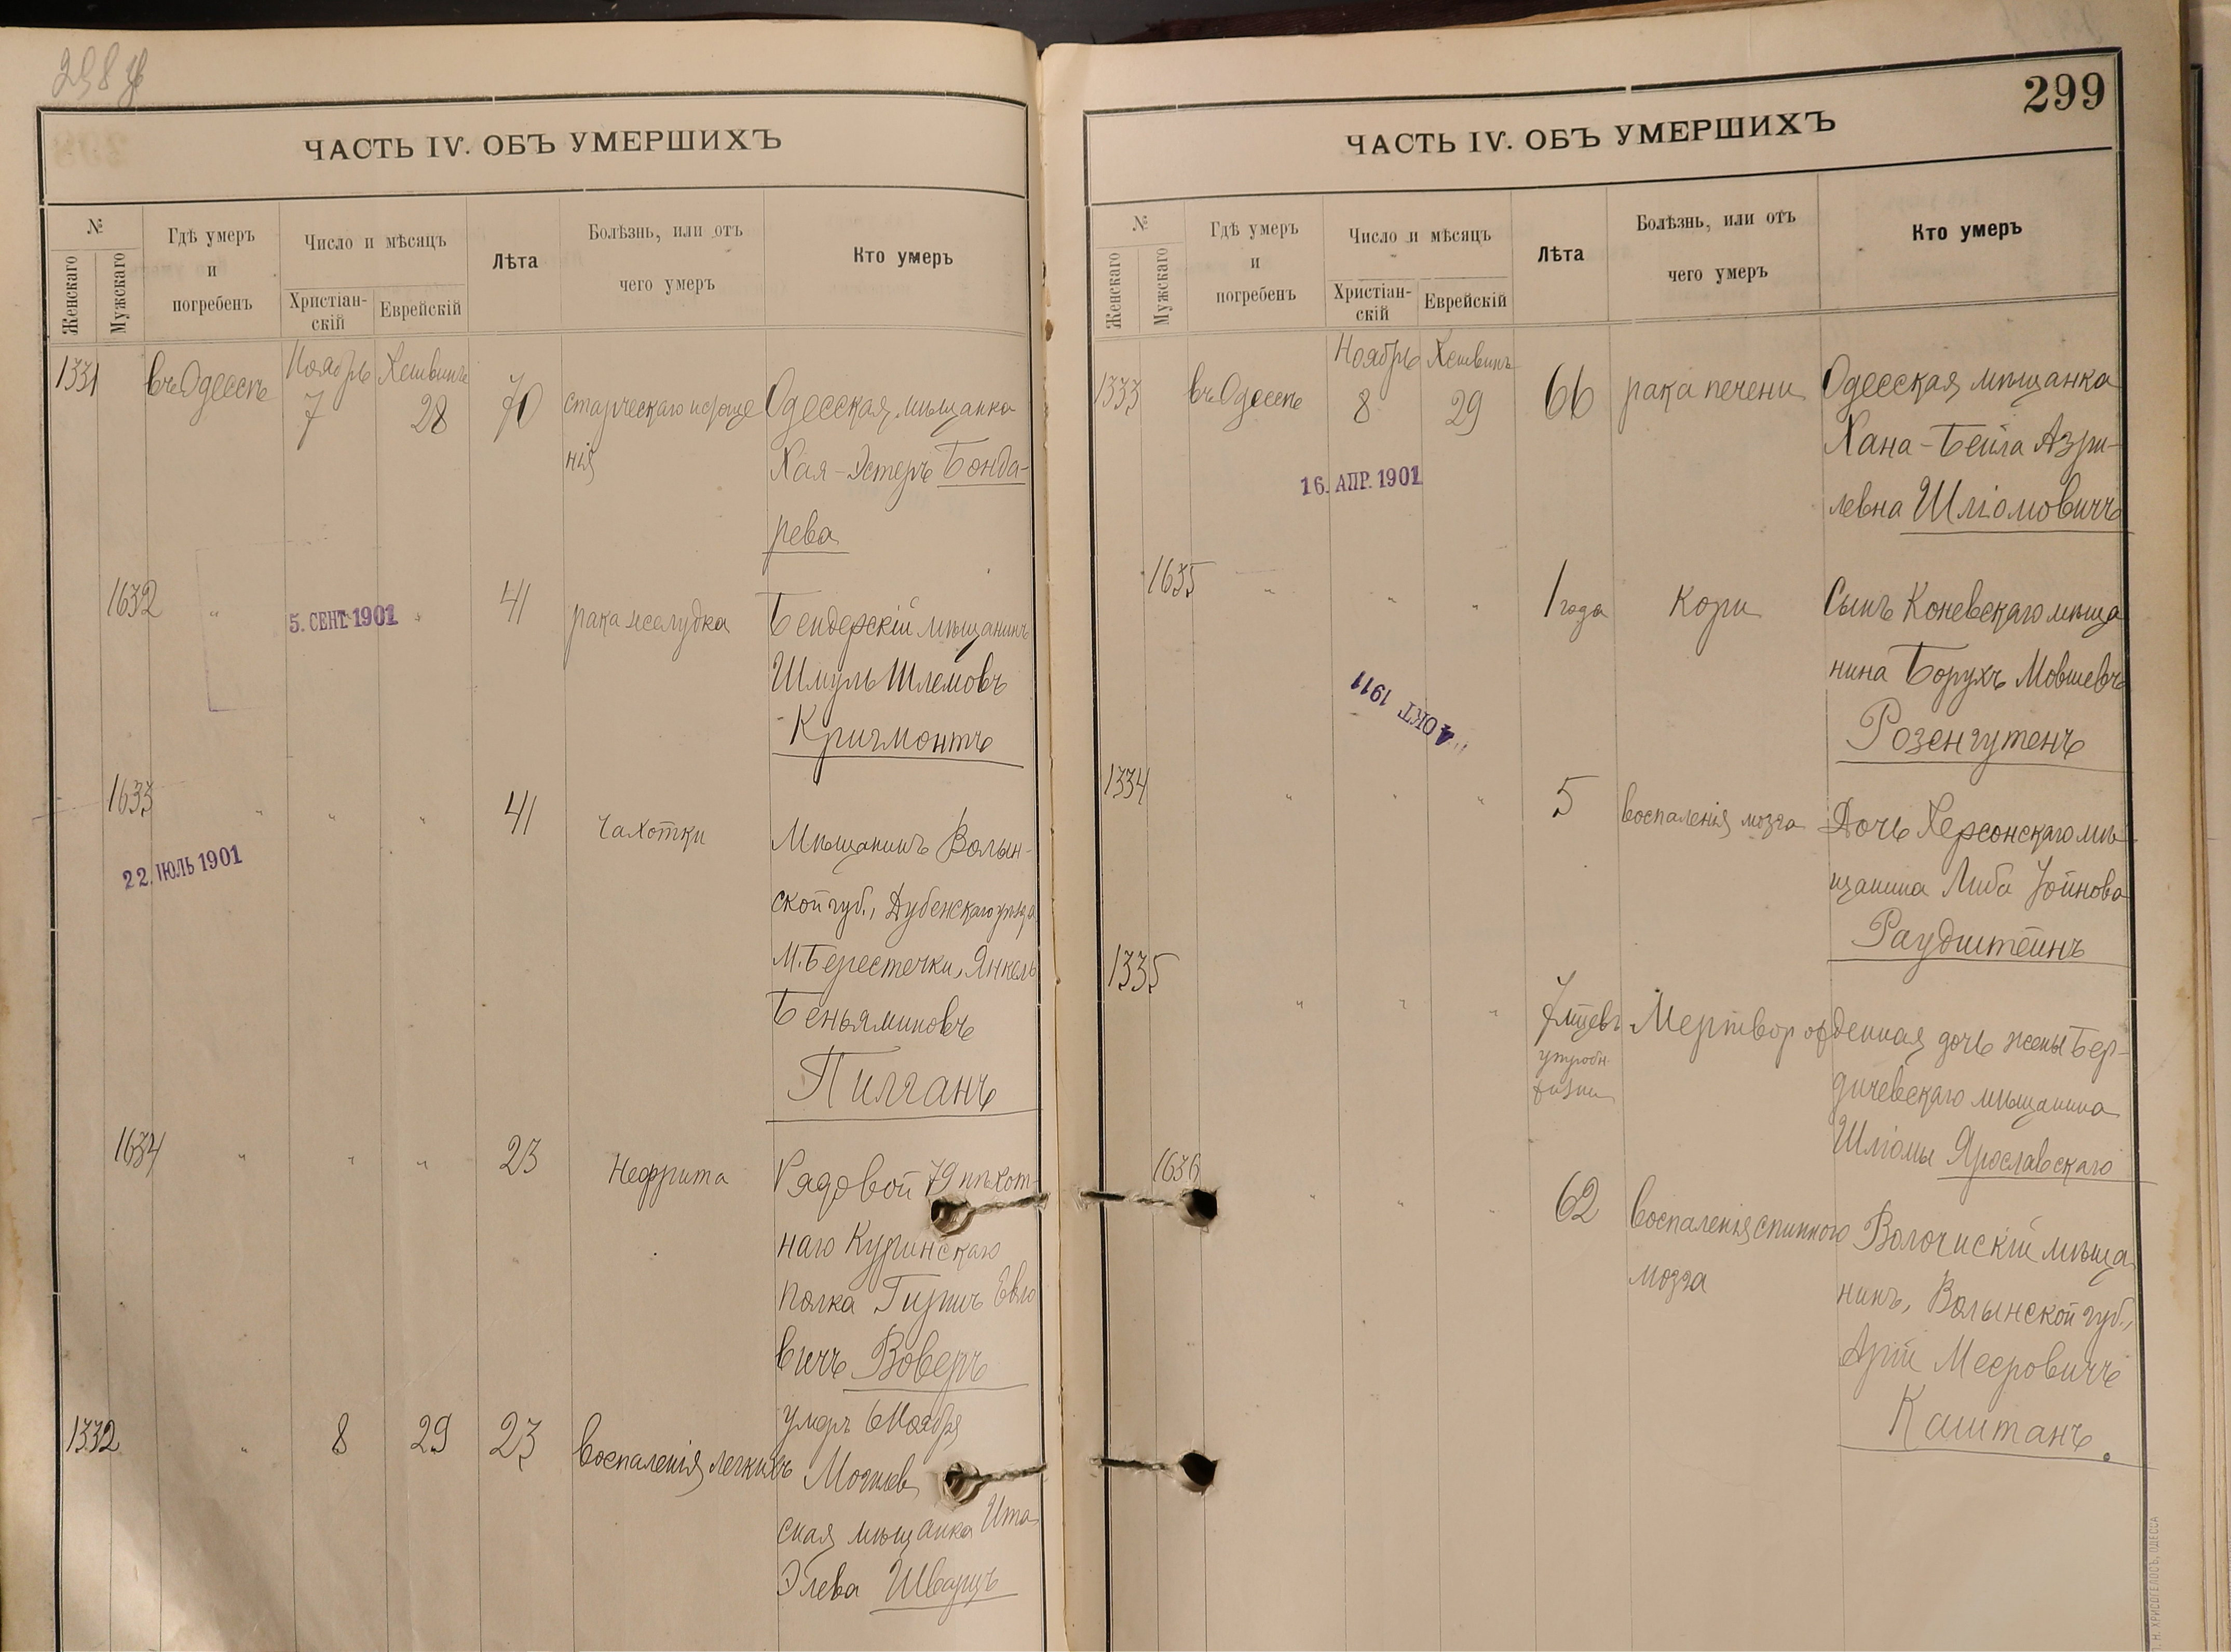 298
ЧАСТЬ IV. ОБЪ УМЕРШИХЪ
№
Женскаго
Мужскаго
Гдѣ умеръ
и
погребенъ
Число и мѣсяцъ
Христіан-
скій
Еврейскій
Лѣта
Болѣзнь, или отъ
чего умеръ
Кто умеръ
1331
въ Одессѣ
Ноябрь
7
Хешвинъ
28
70
старческаго истоще
нія
Одесская мѣщанка
Хая-Эстеръ Бонда-
рева
1632
"
5. СЕНТ 1901
"
41
рака желудка
Бендерскій мѣщанинъ
Шмуль Шлемовъ
Кричмонтъ
1633
"
"
"
22. ІЮЛЬ 1901
41
Чахотки
Мѣщанинъ Волын-
ской губ., Дубенскаго уѣзда
М. Берестечки, Янкель
Беньяминовъ
Пилганъ
1634
"
"
"
23
Нефрита
Рядовой 79 пѣхот-
наго Куринскаго
полка Гиршъ
вичъ Воверъ
умеръ 6 Ноября
1332
"
8
29
23
воспаленія легкихъ
Могилев
ская мѣщанка Ита
Элева Шварцъ
299
ЧАСТЬ IV. ОБЪ УМЕРШИХЪ
№
Женскаго
Мужскаго
Гдѣ умеръ
и
погребенъ
Число и мѣсяцъ
Христіан-
скій
Еврейскій
Лѣта
Болѣзнь, или отъ
чего умеръ
Кто умеръ
1333
въ Одессѣ
Ноябрь
8
Хешвинъ
29
66
рака печени
Одесская мѣщанка
Хана-Бейла Азри-
левна Шліомовичъ
16. АПР. 1901
1635
"
"
"
1 года
Кори
Сынъ Коневскаго мѣща
нина Борухъ Мовшевъ
Розенгутенъ
4 ОКТ 1911
1334
"
"
"
5
воспаленія мозга
Дочь Херсонскаго мѣ-
щанина Либа Іойнова
Раудштейнъ
1335
"
"
"
7 мцевъ
утробн.
жизни
Мертворожденная дочь жены Бер-
дичевскаго мѣщанина
Шліомы Ярославскаго
1636
"
"
"
62
воспаленія спинного
мозга
Волочискій мѣща
нинъ, Волынской губ.,
Арій Мееровичъ
Каштанъ.